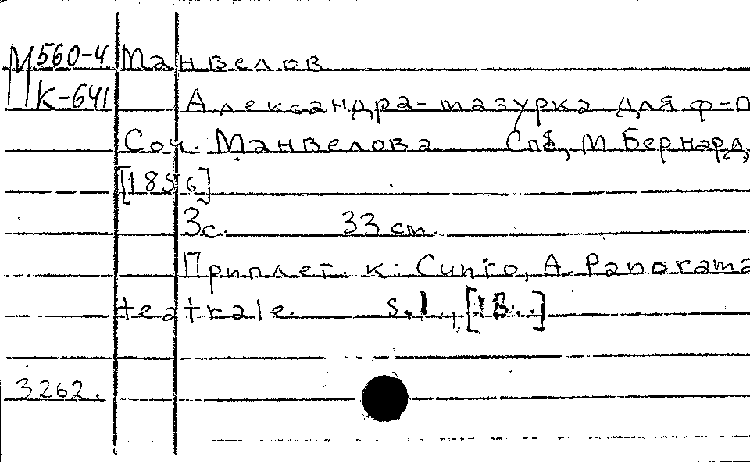 М 560-4 Манвелов
К-641 Александра-мазурка для ф-п
Соч. Манвелова Спб, М. Бернард,
[1856]
3с. 33 cm.
Приплет. к: Cunio, A. Panorama
teatrale. S.l., [18..]
3262.